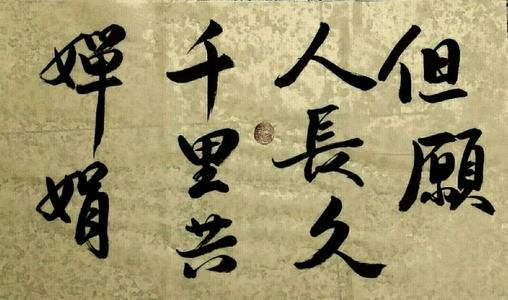 但願
人長久
千里共
嬋娟